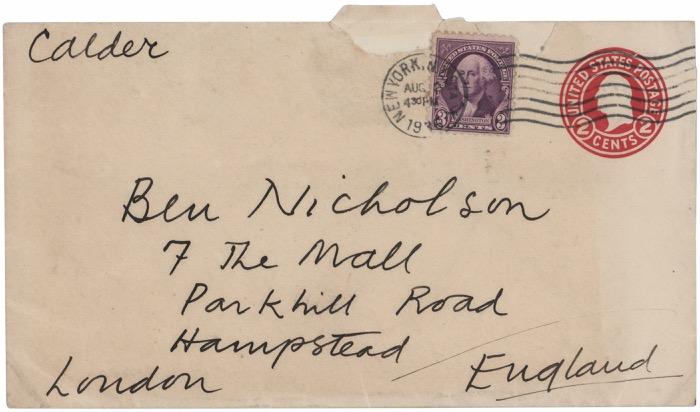 Calder
UNITED STATES POSTAGE
3 CENTS
WASHINGTON
NEW YORK, N.
AUG
4 30 PM
19
UNITED STATES POSTAGE
2 2
CENTS
Ben Nicholson
7 The Mall
Parkhill Road
Hampstead
London England